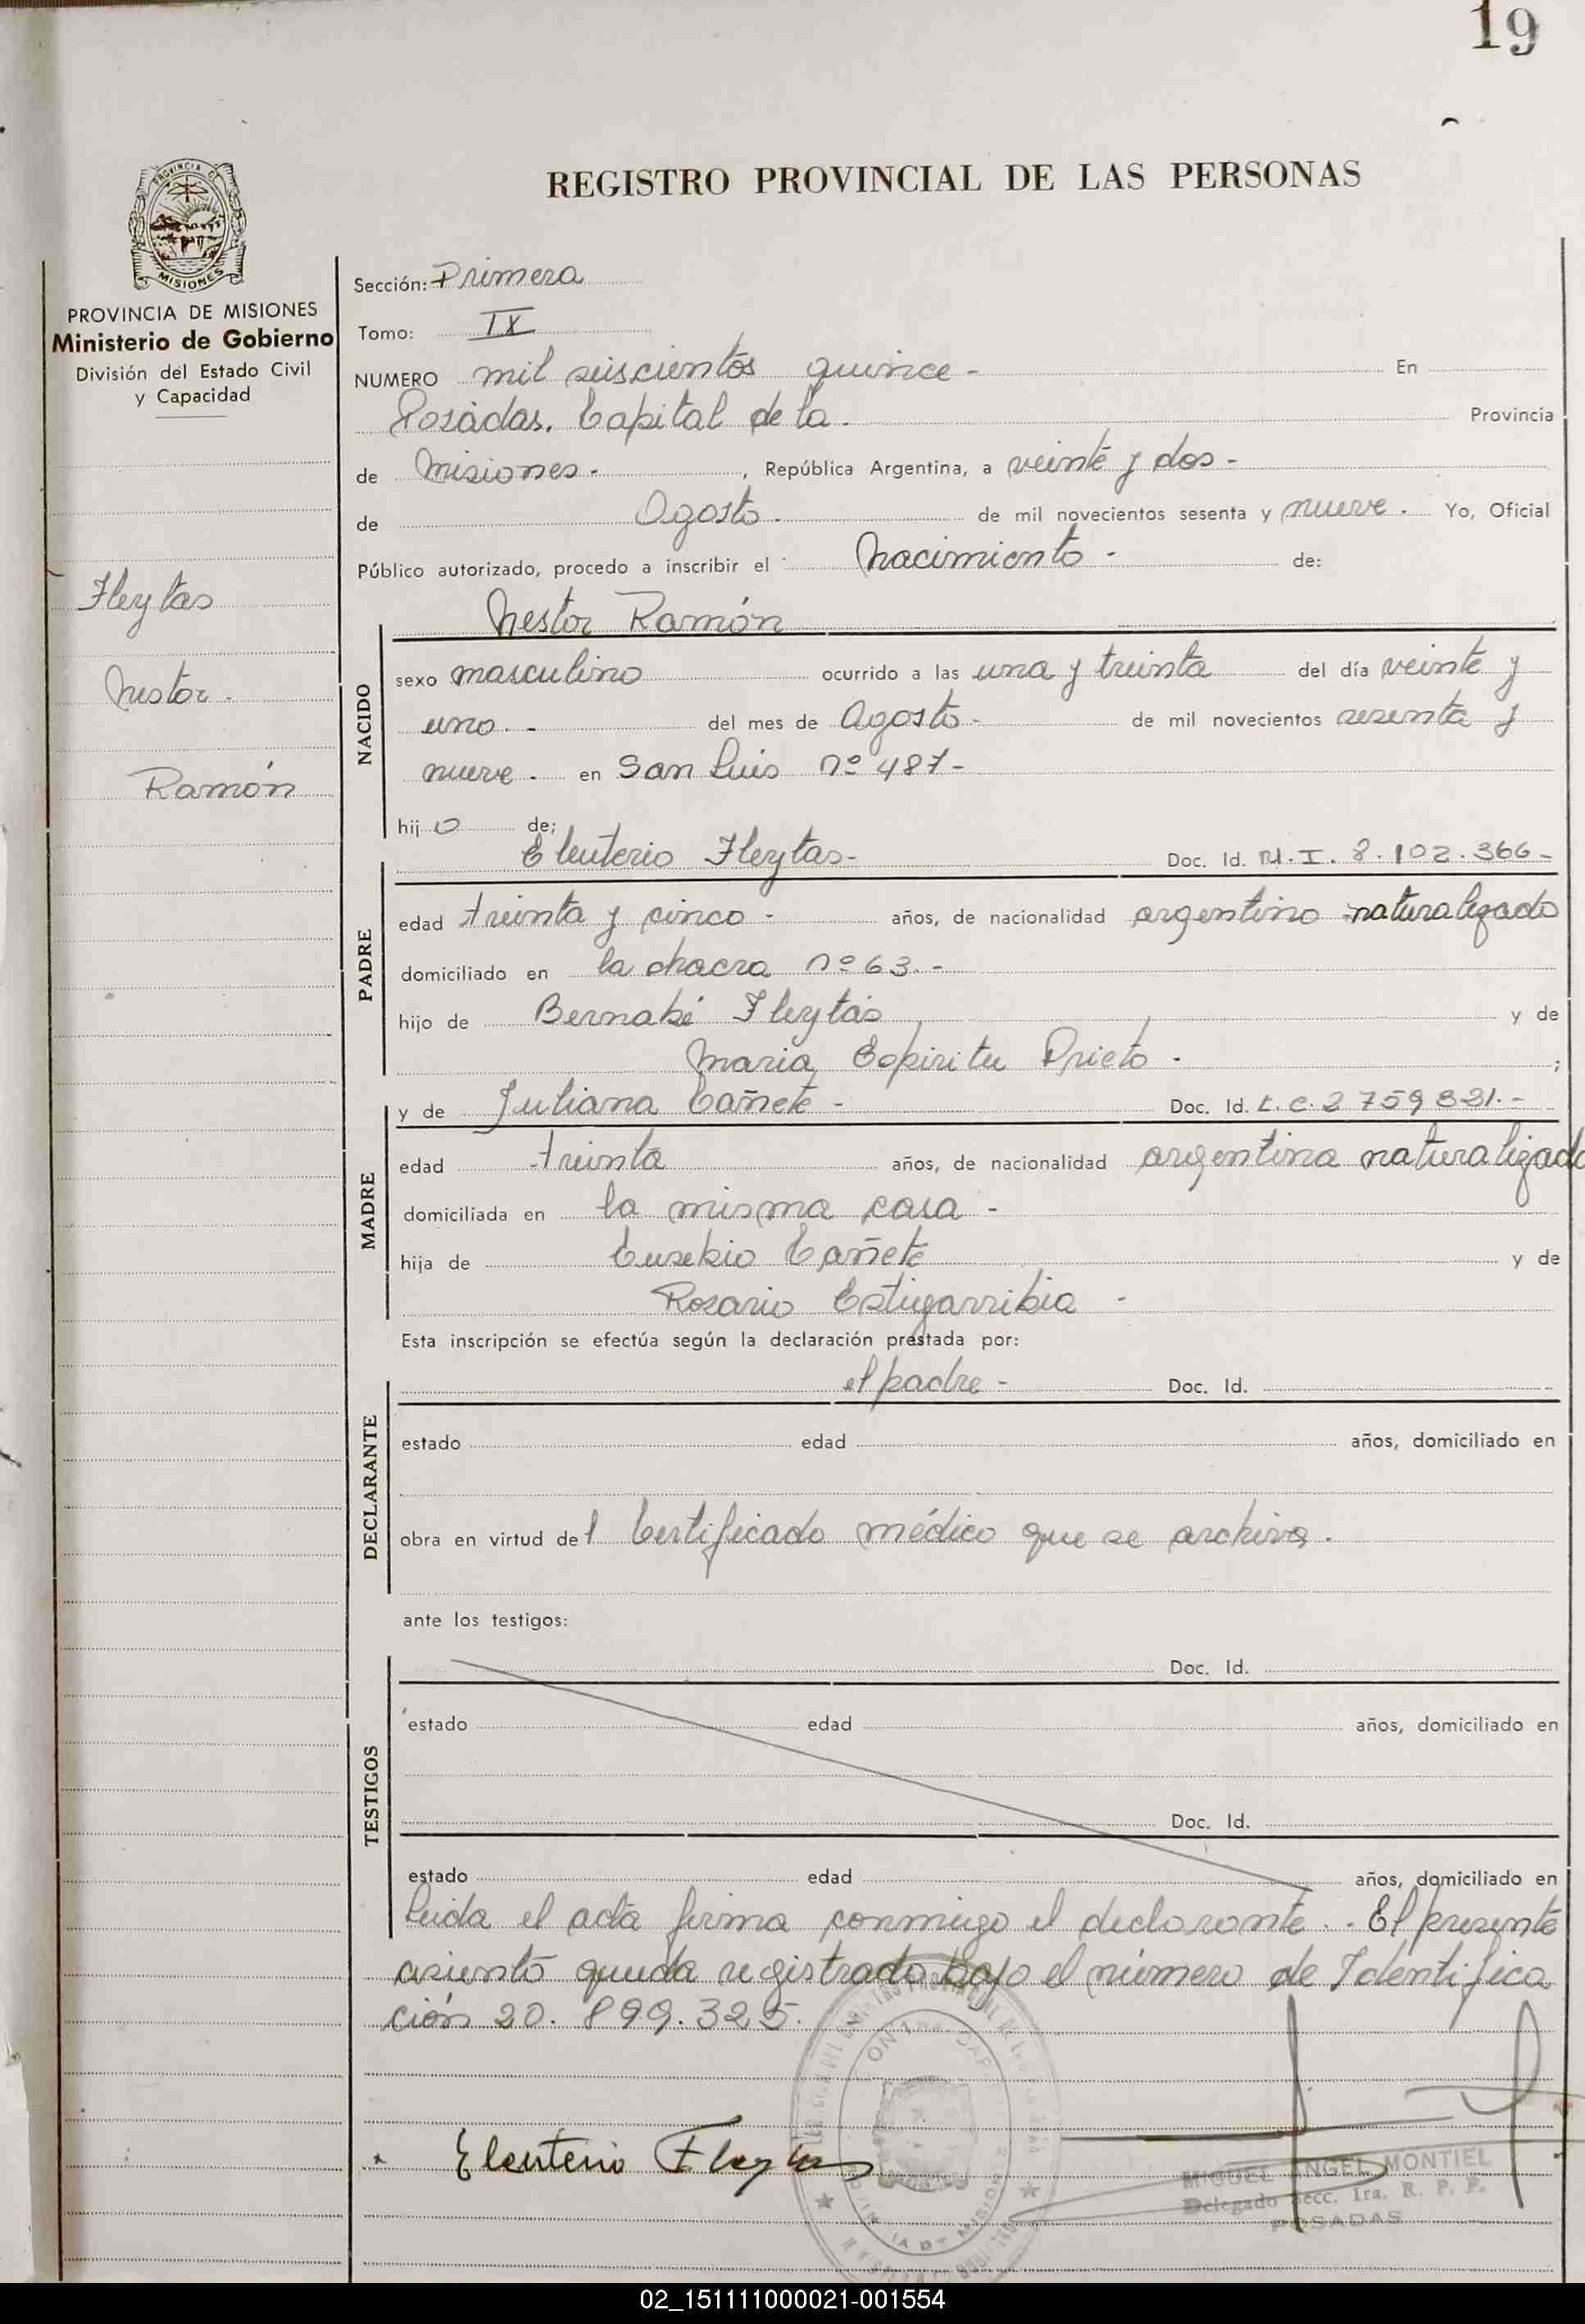 19
REGISTRO PROVINCIAL DE LAS PERSONAS
PROVINCIA DE
MISIONES
PROVINCIA DE MISIONES
Ministerio de Gobierno
División del Estado Civil
y Capacidad
Fleytas
Nestor.
Ramón
Sección: Primera
Tomo: IX
NUMERO mil seiscientos quince - En
Posadas. Capital de la. Provincia
de Misiones. , República Argentina, a veinte y dos -
de Agosto. de mil novecientos sesenta y nueve. Yo, Oficial
Público autorizado, procedo a inscribir el Nacimiento - de:
Nestor Ramón
NACIDO
sexo masculino ocurrido a las una y treinta del día veinte y
uno. - del mes de Agosto - de mil novecientos sesenta y
nueve. en San Luis nº 487-
hijo de:
Eleuterio Fleytas- Doc. Id. M.I. 8.102.366-
PADRE
edad treinta y cinco - años, de nacionalidad argentino naturalizado
domiciliado en la chacra nº 63.-
hijo de Bernabé Fleytas y de
Maria Espiritu Prieto - ;
y de Juliana Cañete - Doc. Id. L.C. 2759821.-
MADRE
edad treinta años, de nacionalidad argentina naturalizada
domiciliada en la misma casa -
hija de Eusebio Cañete y de
Rosario Estigarribia -
Esta inscripción se efectúa según la declaración prestada por:
el padre - Doc. Id.
DECLARANTE
estado edad años, domiciliado en
obra en virtud del Certificado médico que se archiva.
ante los testigos:
Doc. Id.
TESTIGOS
estado edad años, domiciliado en
Doc. Id.
estado edad años, domiciliado en
Leida el acta firma conmigo el declarante. - El presente
asiento queda registrado bajo el número de Identifica
ción 20.899.325.
Eleuterio Fleytas
MIGUEL ANGEL MONTIEL
Delegado Secc. 1ra. R. P. P.
POSADAS
02_151111000021-001554